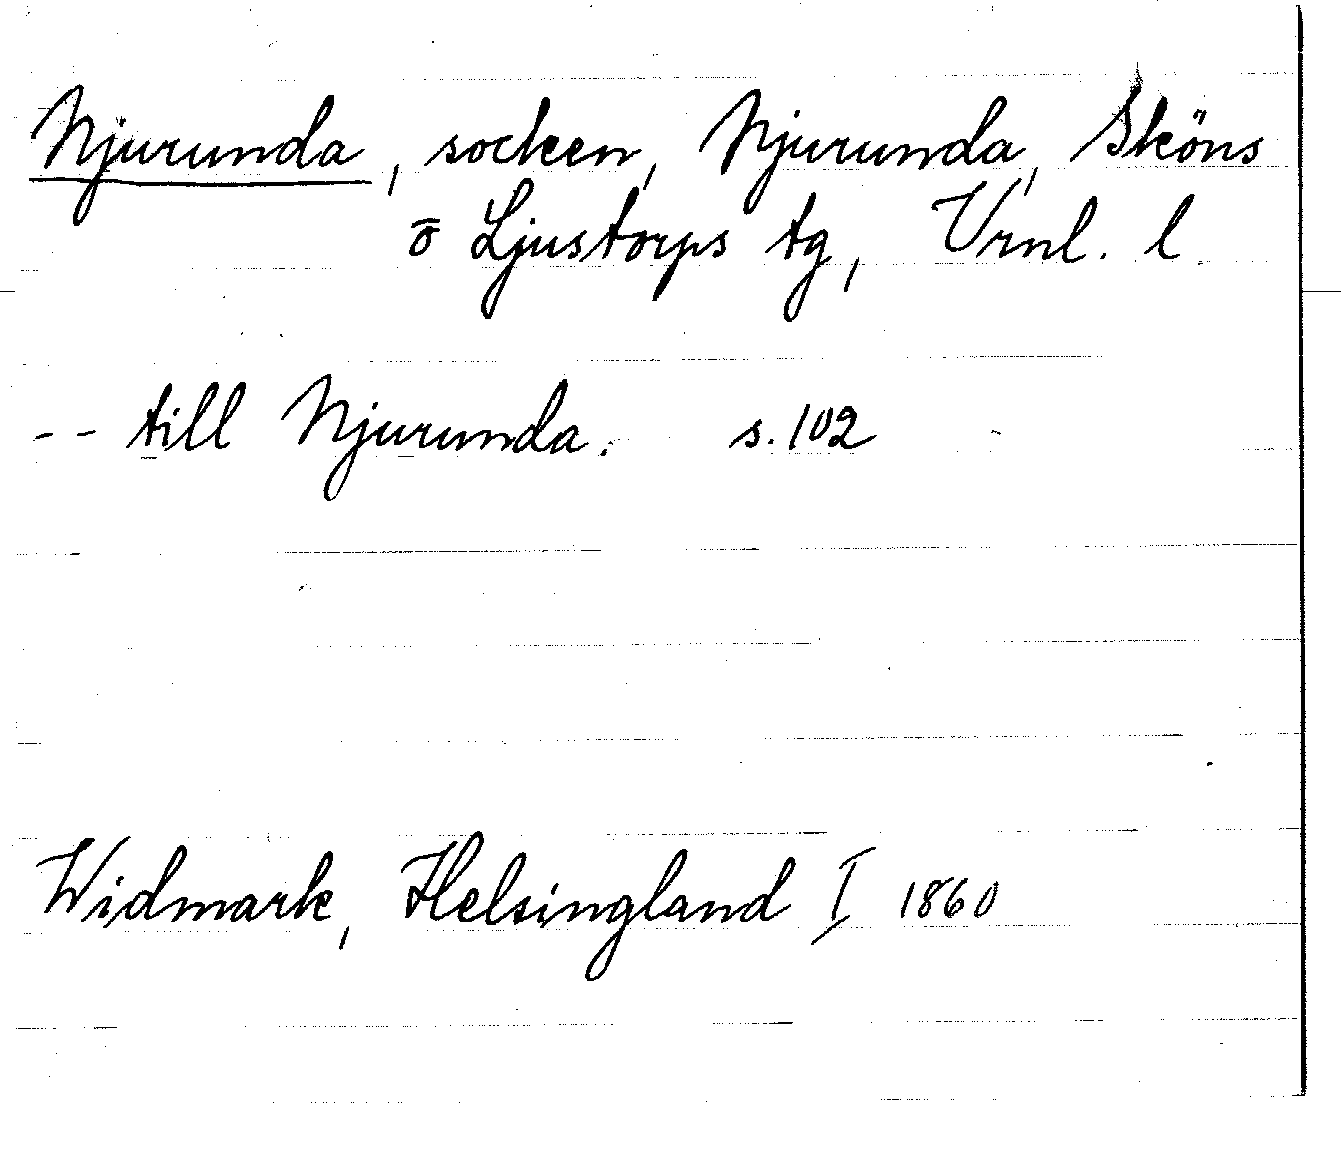 Njurunda, socken, Njurunda, Sköns
o Ljustorps tg, Vrnl. l
-- till Njurunda. s. 102
Widmark, Helsingland I 1860